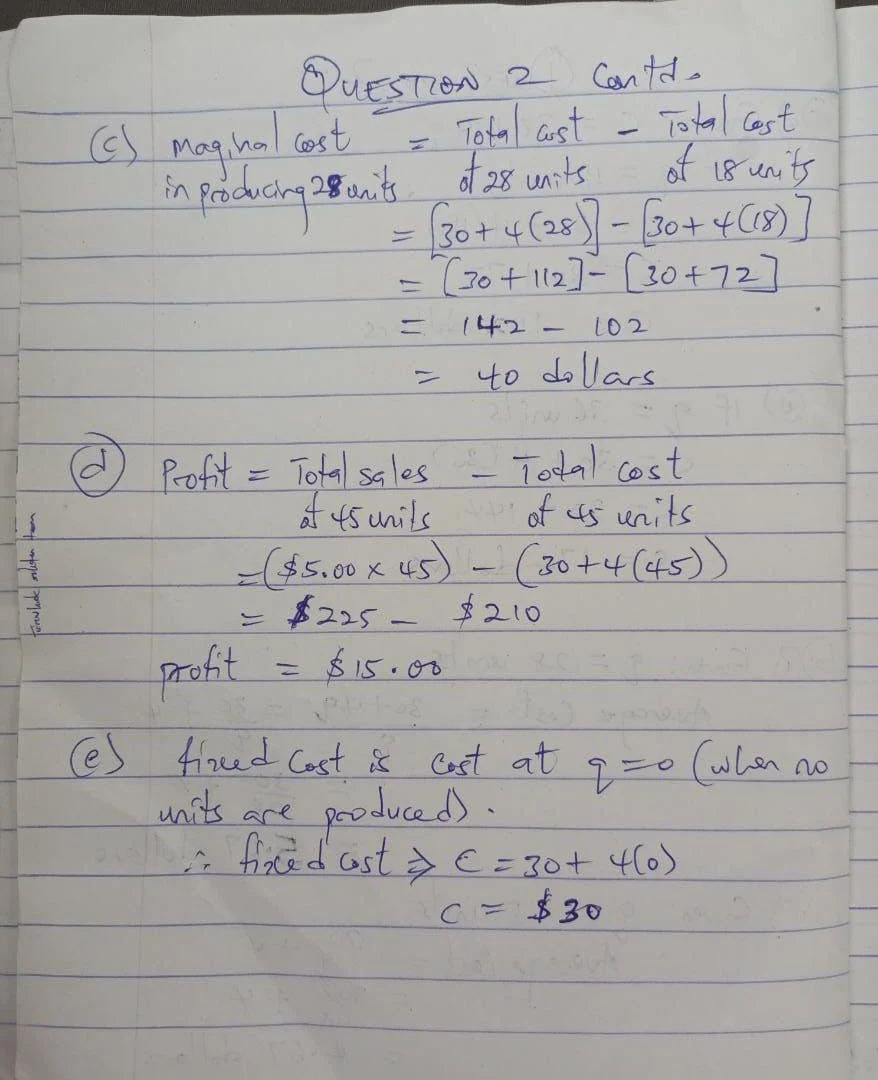 QUESTION 2 Contd.
(c) Maginal cost = Total cost - Total cost
in producing 28 units of 28 units of 18 units
= [30+4(28)] - [30+4(18)]
= [30+112] - [30+72]
= 142 - 102
= 40 dollars
(d) Profit = Total sales - Total cost
of 45 units of 45 units
= ($5.00 x 45) - (30+4(45))
= $225 - $210
profit = $15.00
(e) fixed cost is cost at q=0 (when no
units are produced).
∴ fixed cost ⇒ C = 30+ 4(0)
C = $30